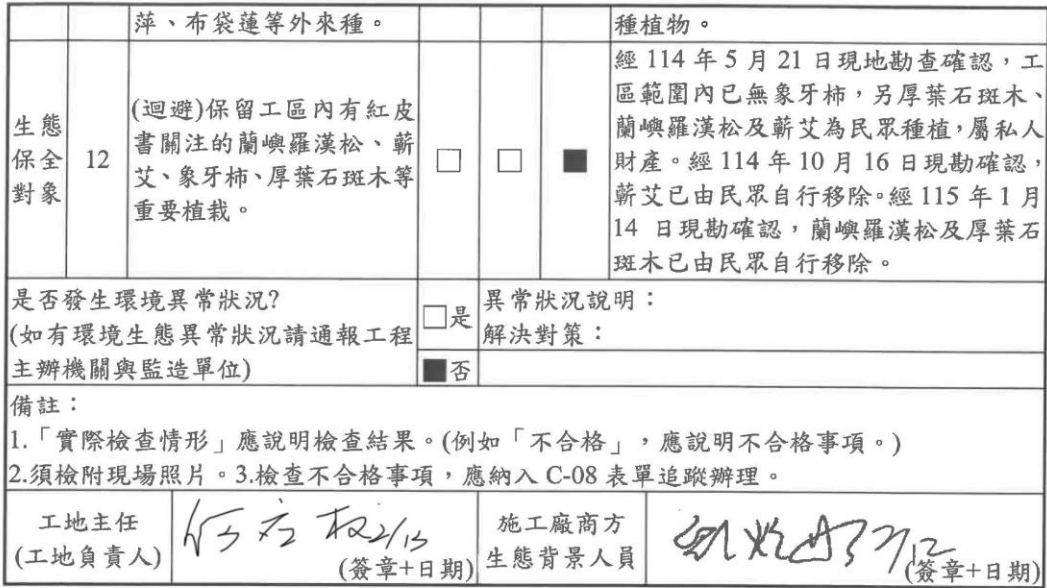 萍、布袋蓮等外來種。
種植物。
生態保全對象
12
(迴避)保留工區內有紅皮
書關注的蘭嶼羅漢松、蘄
艾、象牙柿、厚葉石斑木等
重要植栽。
□ □ ■
經 114 年 5 月 21 日現地勘查確認，工
區範圍內已無象牙柿，另厚葉石斑木、
蘭嶼羅漢松及蘄艾為民眾種植，屬私人
財產。經 114 年 10 月 16 日現勘確認，
蘄艾已由民眾自行移除。經 115 年 1 月
14 日現勘確認，蘭嶼羅漢松及厚葉石
斑木已由民眾自行移除。
是否發生環境異常狀況?
(如有環境生態異常狀況請通報工程
主辦機關與監造單位)
□是
■否
異常狀況說明：
解決對策：
備註：
1.「實際檢查情形」應說明檢查結果。(例如「不合格」，應說明不合格事項。)
2.須檢附現場照片。3.檢查不合格事項，應納入 C-08 表單追蹤辦理。
工地主任
(工地負責人)
2/13
(簽章+日期)
施工廠商方
生態背景人員
2/12
(簽章+日期)